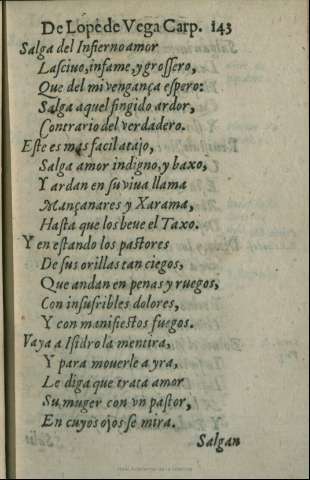 De Lope de Vega Carp. 143
Salga del Infierno amor
Lasciuo, infame, y grossero,
Que del mi vengança espero:
Salga aquel fingido ardor,
Contrario del verdadero.
Este es mas facil atajo,
Salga amor indigno, y baxo,
Y ardan en su viua llama
Mançanares y Xarama,
Hasta que los beue el Taxo.
Y en estando los pastores
De sus orillas tan ciegos,
Que andan en penas y ruegos,
Con insufribles dolores,
Y con manifiestos fuegos.
Vaya a Isidro la mentira,
Y para mouerle a yra,
Le diga que trata amor
Su muger con vn pastor,
En cuyos ojos se mira.
Salgan